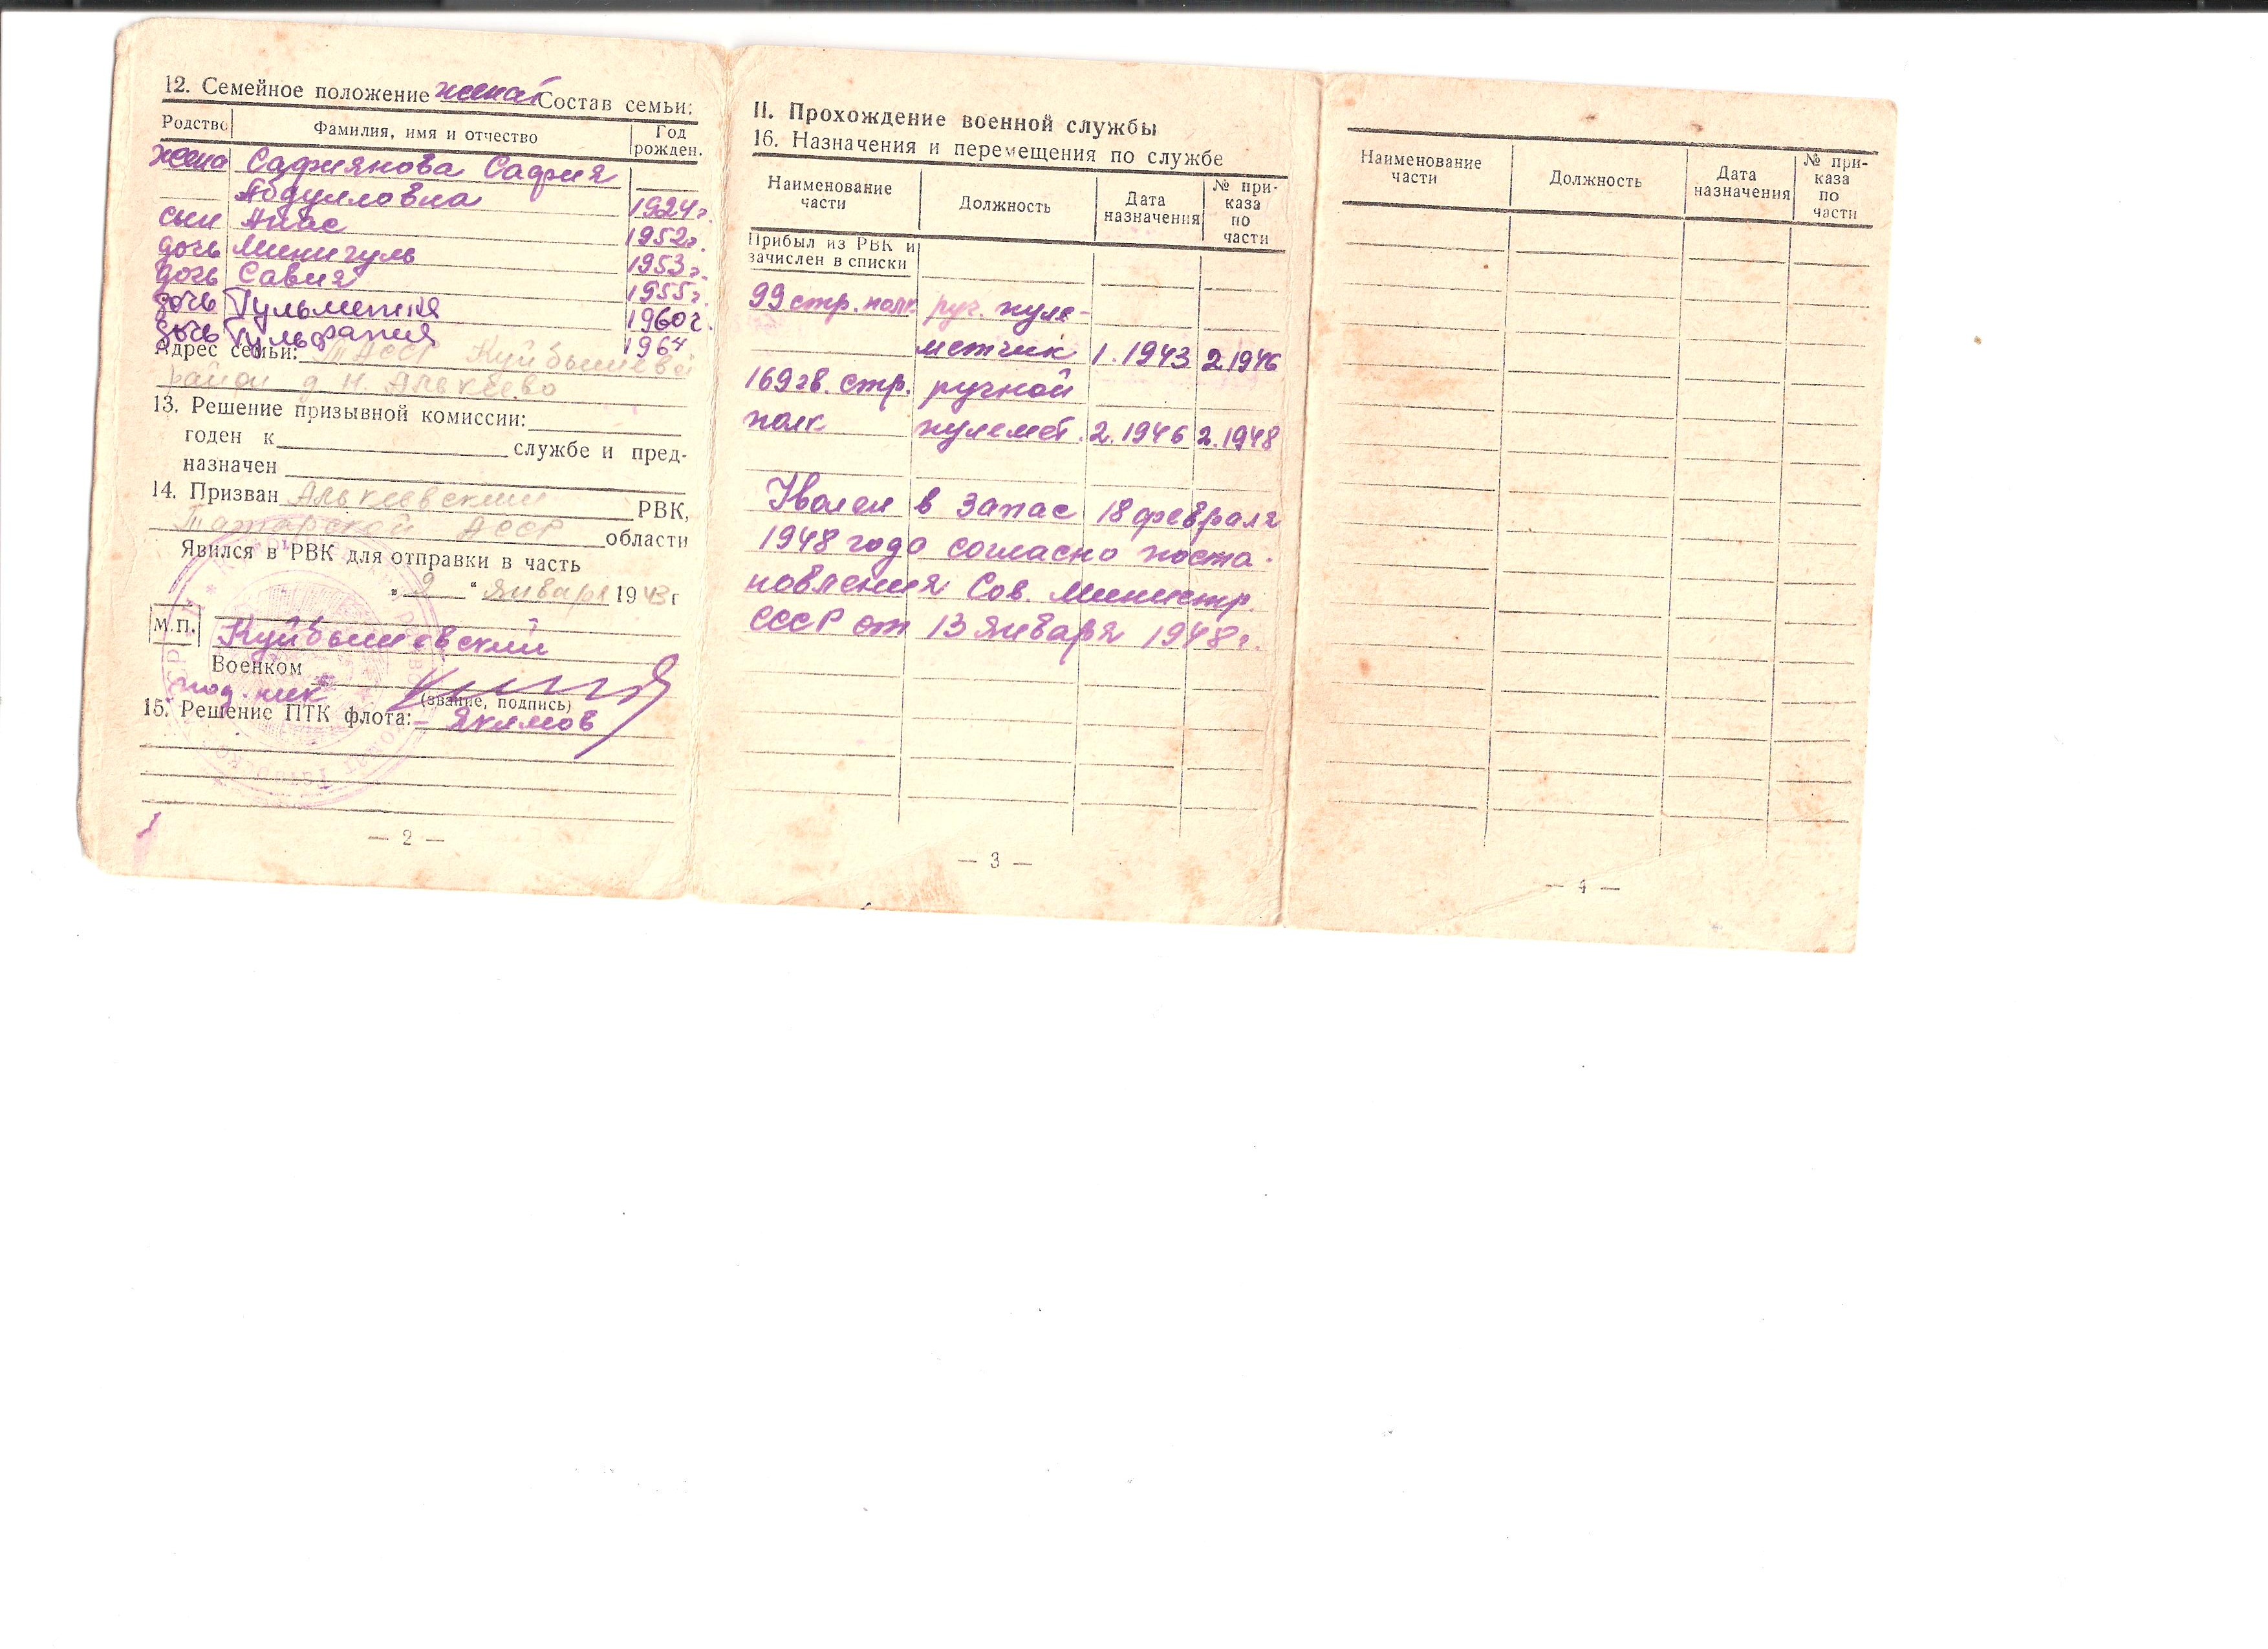 12. Семейное положение женат Состав семьи:
Родство Фамилия, имя и отчество Год рожден.
жена Сафиянова Сафия
Абдулловна 1924г.
сын Анас 1952г.
дочь Минигуль 1953г.
дочь Савия 1955г.
дочь 1960г.
дочь Гульфания 1964
Адрес семьи: ТАССР Куйбышевс
район д Н. Алькеево
13. Решение призывной комиссии:
годен к службе и пред-
назначен
14. Призван Алькеевский РВК,
Татарской АССР области
Явился в РВК для отправки в часть
„ 2 “ января 1943г
М.П. Куйбышевский
Военком
(звание, подпись)
15. Решение ПТК флота: Якимов
— 2 —
II. Прохождение военной службы
16. Назначения и перемещения по службе
Наименование части Должность Дата назначения № при-каза по части
Прибыл из РВК и
зачислен в списки
99 стр. полк руч. пуле-
метчик 1.1943 2.1946
169 гв. стр. ручной
полк пулемет. 2.1946 2.1948
Уволен в запас 18 февраля
1948 года согласно поста-
новления Сов. Министр.
СССР от 13 января 1948г.
— 3 —
Наименование части Должность Дата назначения № при-каза по части
— 4 —